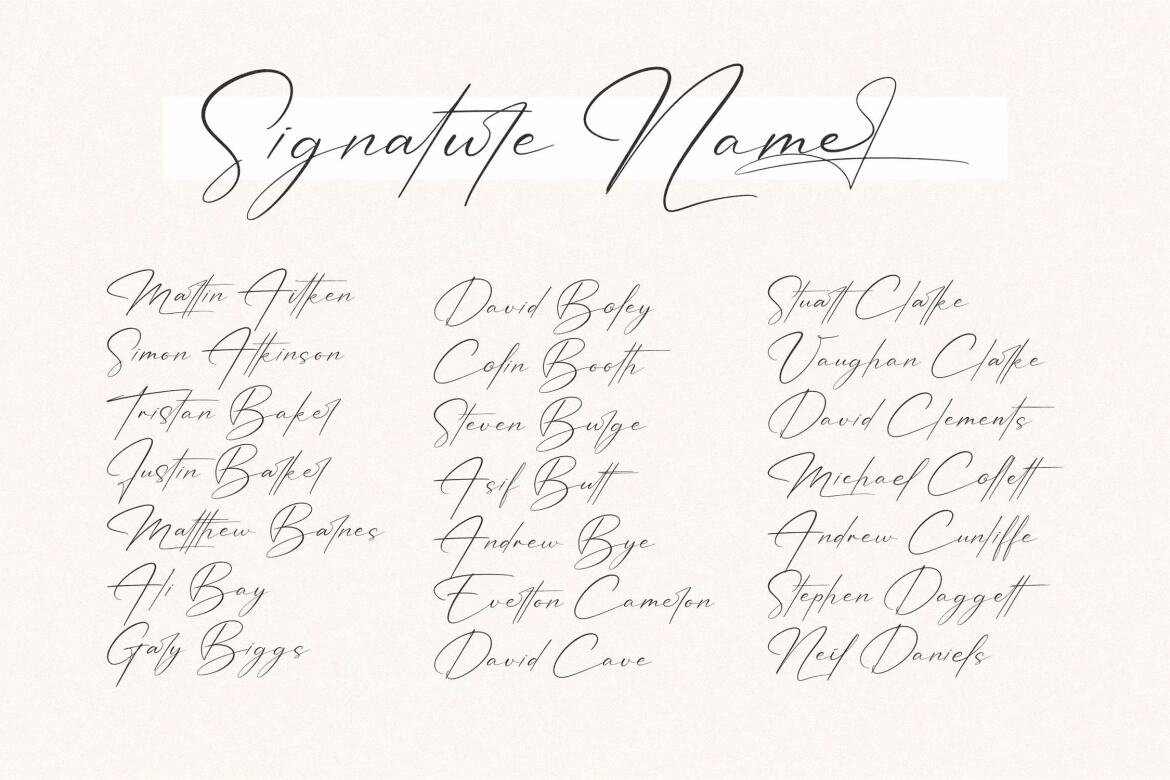 Signature Names
Martin Aitken
Simon Atkinson
Tristan Baker
Justin Barker
Matthew Barnes
Ali Bay
Gary Biggs
David Boley
Colin Booth
Steven Burge
Asif Butt
Andrew Bye
Everton Cameron
David Cave
Stuart Clarke
Vaughan Clarke
David Clements
Michael Collett
Andrew Cunliffe
Stephen Daggett
Neil Daniels